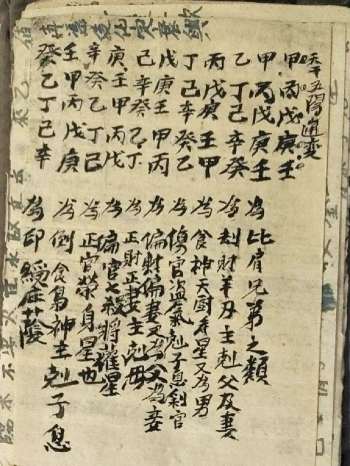 天干五陽通變
甲丙戊庚壬
甲丙戊庚壬 為比肩兄弟之類
乙丁己辛癸 為刦財羊刃主剋父及妻
丙戊庚壬甲 為食神天厨壽星又為男
丁己辛癸乙 為傷官盗氣剋子息剝官
戊庚壬甲丙 為偏財偏妻又為父為妾
己辛癸乙丁 為正財正妻主剋母
庚壬甲丙戊 為偏官七殺將權星
辛癸乙丁己 為正官榮身星也
壬甲丙戊庚 為倒食梟神主剋子息
癸乙丁己辛 為印綬庇蔭